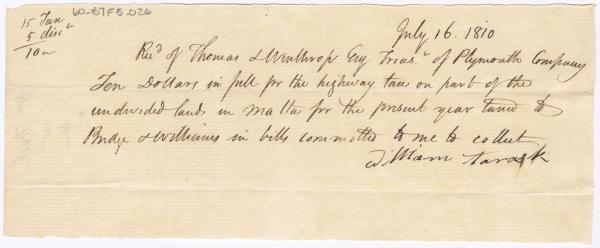 15 Tax
5 disct
10
60-B7F5.026
July 16. 1810
Recd of Thomas L Winthrop Esq Treasr of Plymouth Company
Ten Dollars in full for the highway tax on part of the
undivided lands in Malta for the present year taxed to
Bridge & Williams in bills committed to me to collect
William